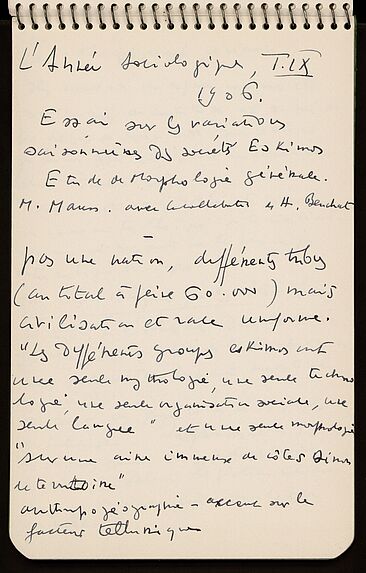 L'Année Sociologique, T. IX
1906.
Essai sur les variations
saisonnières des sociétés Eskimos
Etude de Morphologie générale.
M. Mauss. avec la collabor de H. Beuchat
pas une nation, différents tribus
(au total à peine 60.000) mais
civilisation et race uniforme.
"Les différents groupes eskimos ont
une seule mythologie, une seule techno
logie, une seule organisation sociale, une
seule langue" et une seule morphologie
"sur une aire immense de côtes sinon
de territoire"
anthropogéographie – accent sur le
facteur tellurique